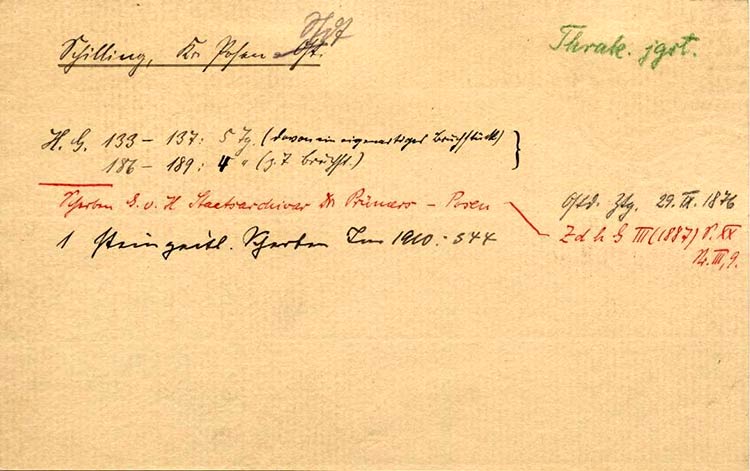 Schilling, Kr. Posen-Ost. Stdt
Thrak. jgst.
H. G. 133 – 137: 5 Tg. (davon ein eigenartiges Bruchstück)
186 – 189: 4 " (z. T. Bruchst.)
Scherben d. v. H Staatsarchivar Dr Prümers – Posen
Ostd. Ztg. 29. IX. 1876
1 steinzeitl. Scherben Inv 1910: 544
Z d h G III (1887) S. XX
Nr. III, 9.